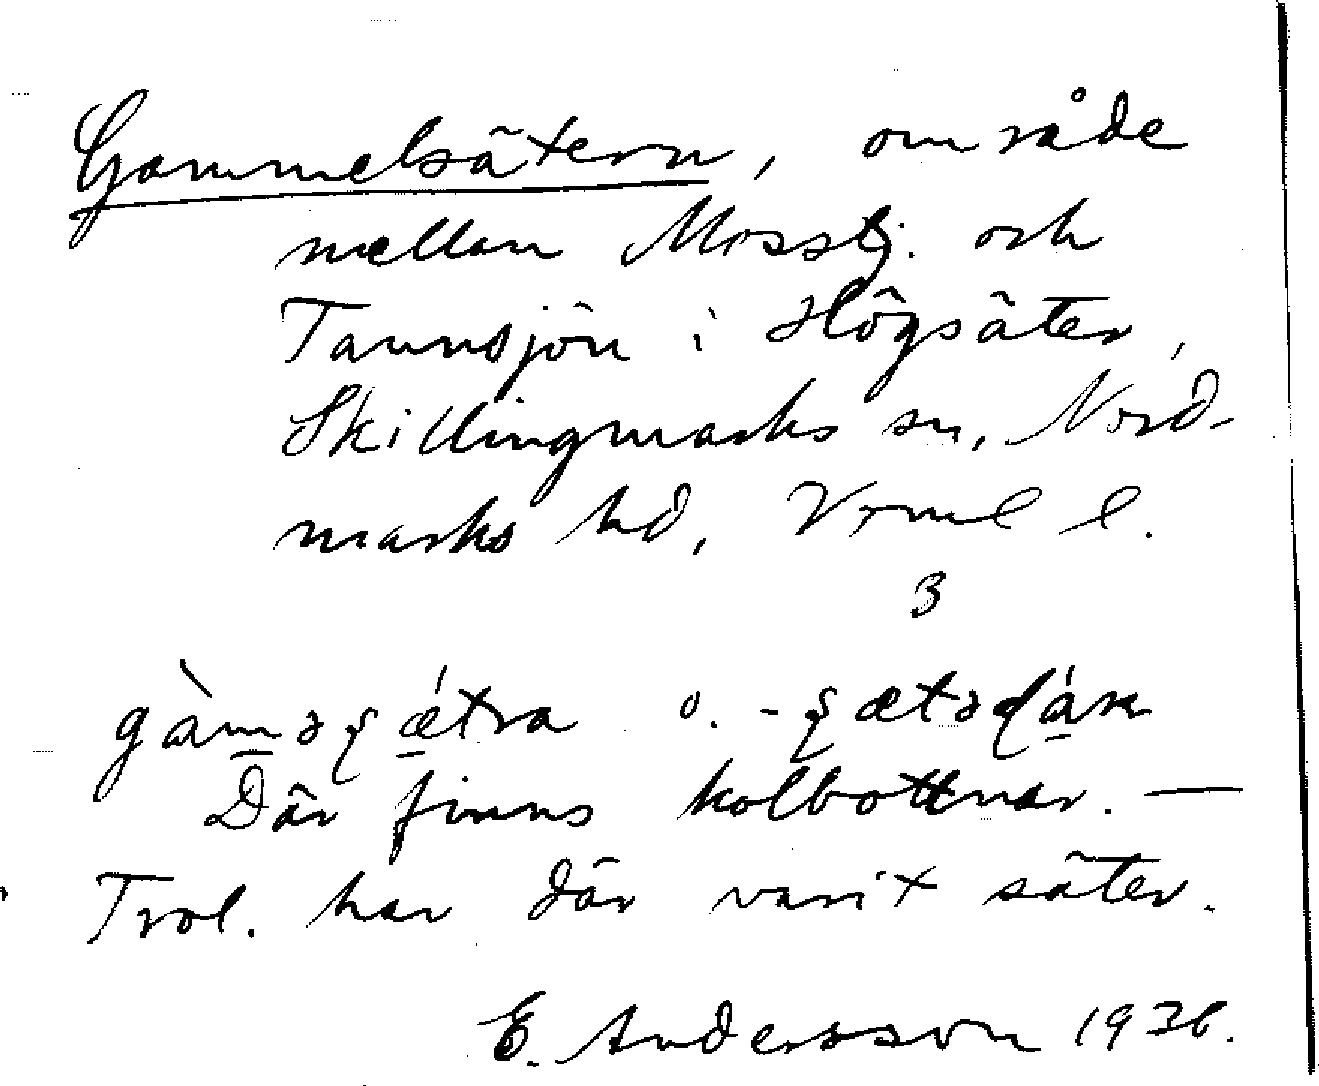 Gammelsätern, område
mellan Mosstj. och
Tannsjön i Högsäter,
Skillingmarks sn, Nord-
marks hd, Vrml l.
3
o.
Där finns kolbottnar. —
Trol. har där varit säter.
E. Andersson 1936.